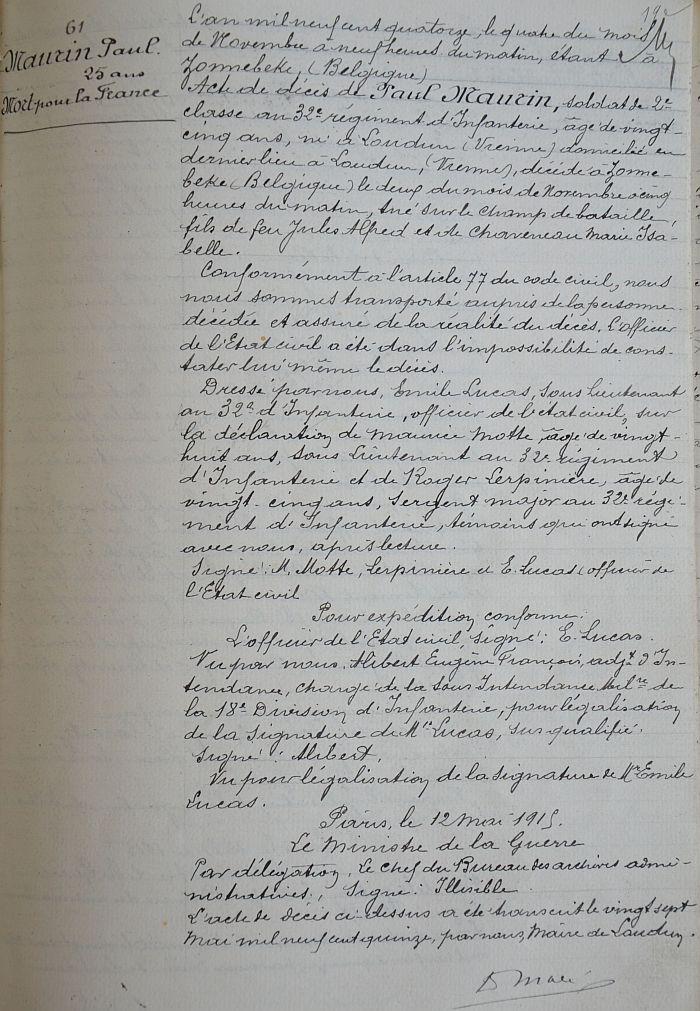 61
Maurin Paul.
25 ans
Mort pour la France
L'an mil neuf cent quatorze, le quatre du mois
de Novembre à neuf heures du matin, étant à
Zonnebeke, (Belgique)
Acte de décès de Paul Maurin, soldat de 2e
classe au 32e régiment d'Infanterie, âgé de vingt-
cinq ans, né à Loudun (Vienne) domicilié en
dernier lieu à Loudun, (Vienne), décédé à Zonne-
beke (Belgique) le deux du mois de Novembre à cinq
heures du matin, tué sur le champ de bataille,
fils de feu Jules Alfred et de Chaveneau Marie Isa-
belle.
Conformément à l'article 77 du code civil, nous
nous sommes transporté auprès de la personne
décédée et assuré de la réalité du décès. L'officier
de l'Etat civil a été dans l'impossibilité de cons-
tater lui même le décès.
Dressé par nous, Emile Lucas, sous lieutenant
au 32e d'Infanterie, officier de l'état civil, sur
la déclaration de Maurice Motte, âgé de vingt-
huit ans, sous Lieutenant au 32e régiment
d'Infanterie et de Roger Lerpinière, âgé de
vingt-cinq ans, sergent major au 32e régi-
ment d'Infanterie, témoins qui ont signé
avec nous, après lecture.
Signé: M. Motte, Lerpinière et E. Lucas (officier de
l'Etat civil
Pour expédition conforme:
L'officier de l'Etat civil, Signé: E. Lucas.
Vu par nous, Alibert Eugène François, adjt d'In-
tendance, chargé de la Sous Intendance Milre de
la 18e Division d'Infanterie, pour légalisation
de la signature de Mr Lucas, sus qualifié.
Signé: Alibert.
Vu pour légalisation de la signature de Mr Emile
Lucas.
Paris, le 12 Mai 1915.
Le Ministre de la Guerre
Par délégation, Le chef du Bureau des archives admi-
nistratives, Signé: Illisible
L'acte de décès ci-dessus a été transcrit le vingt sept
Mai mil neuf cent quinze, par nous, Maire de Loudun.